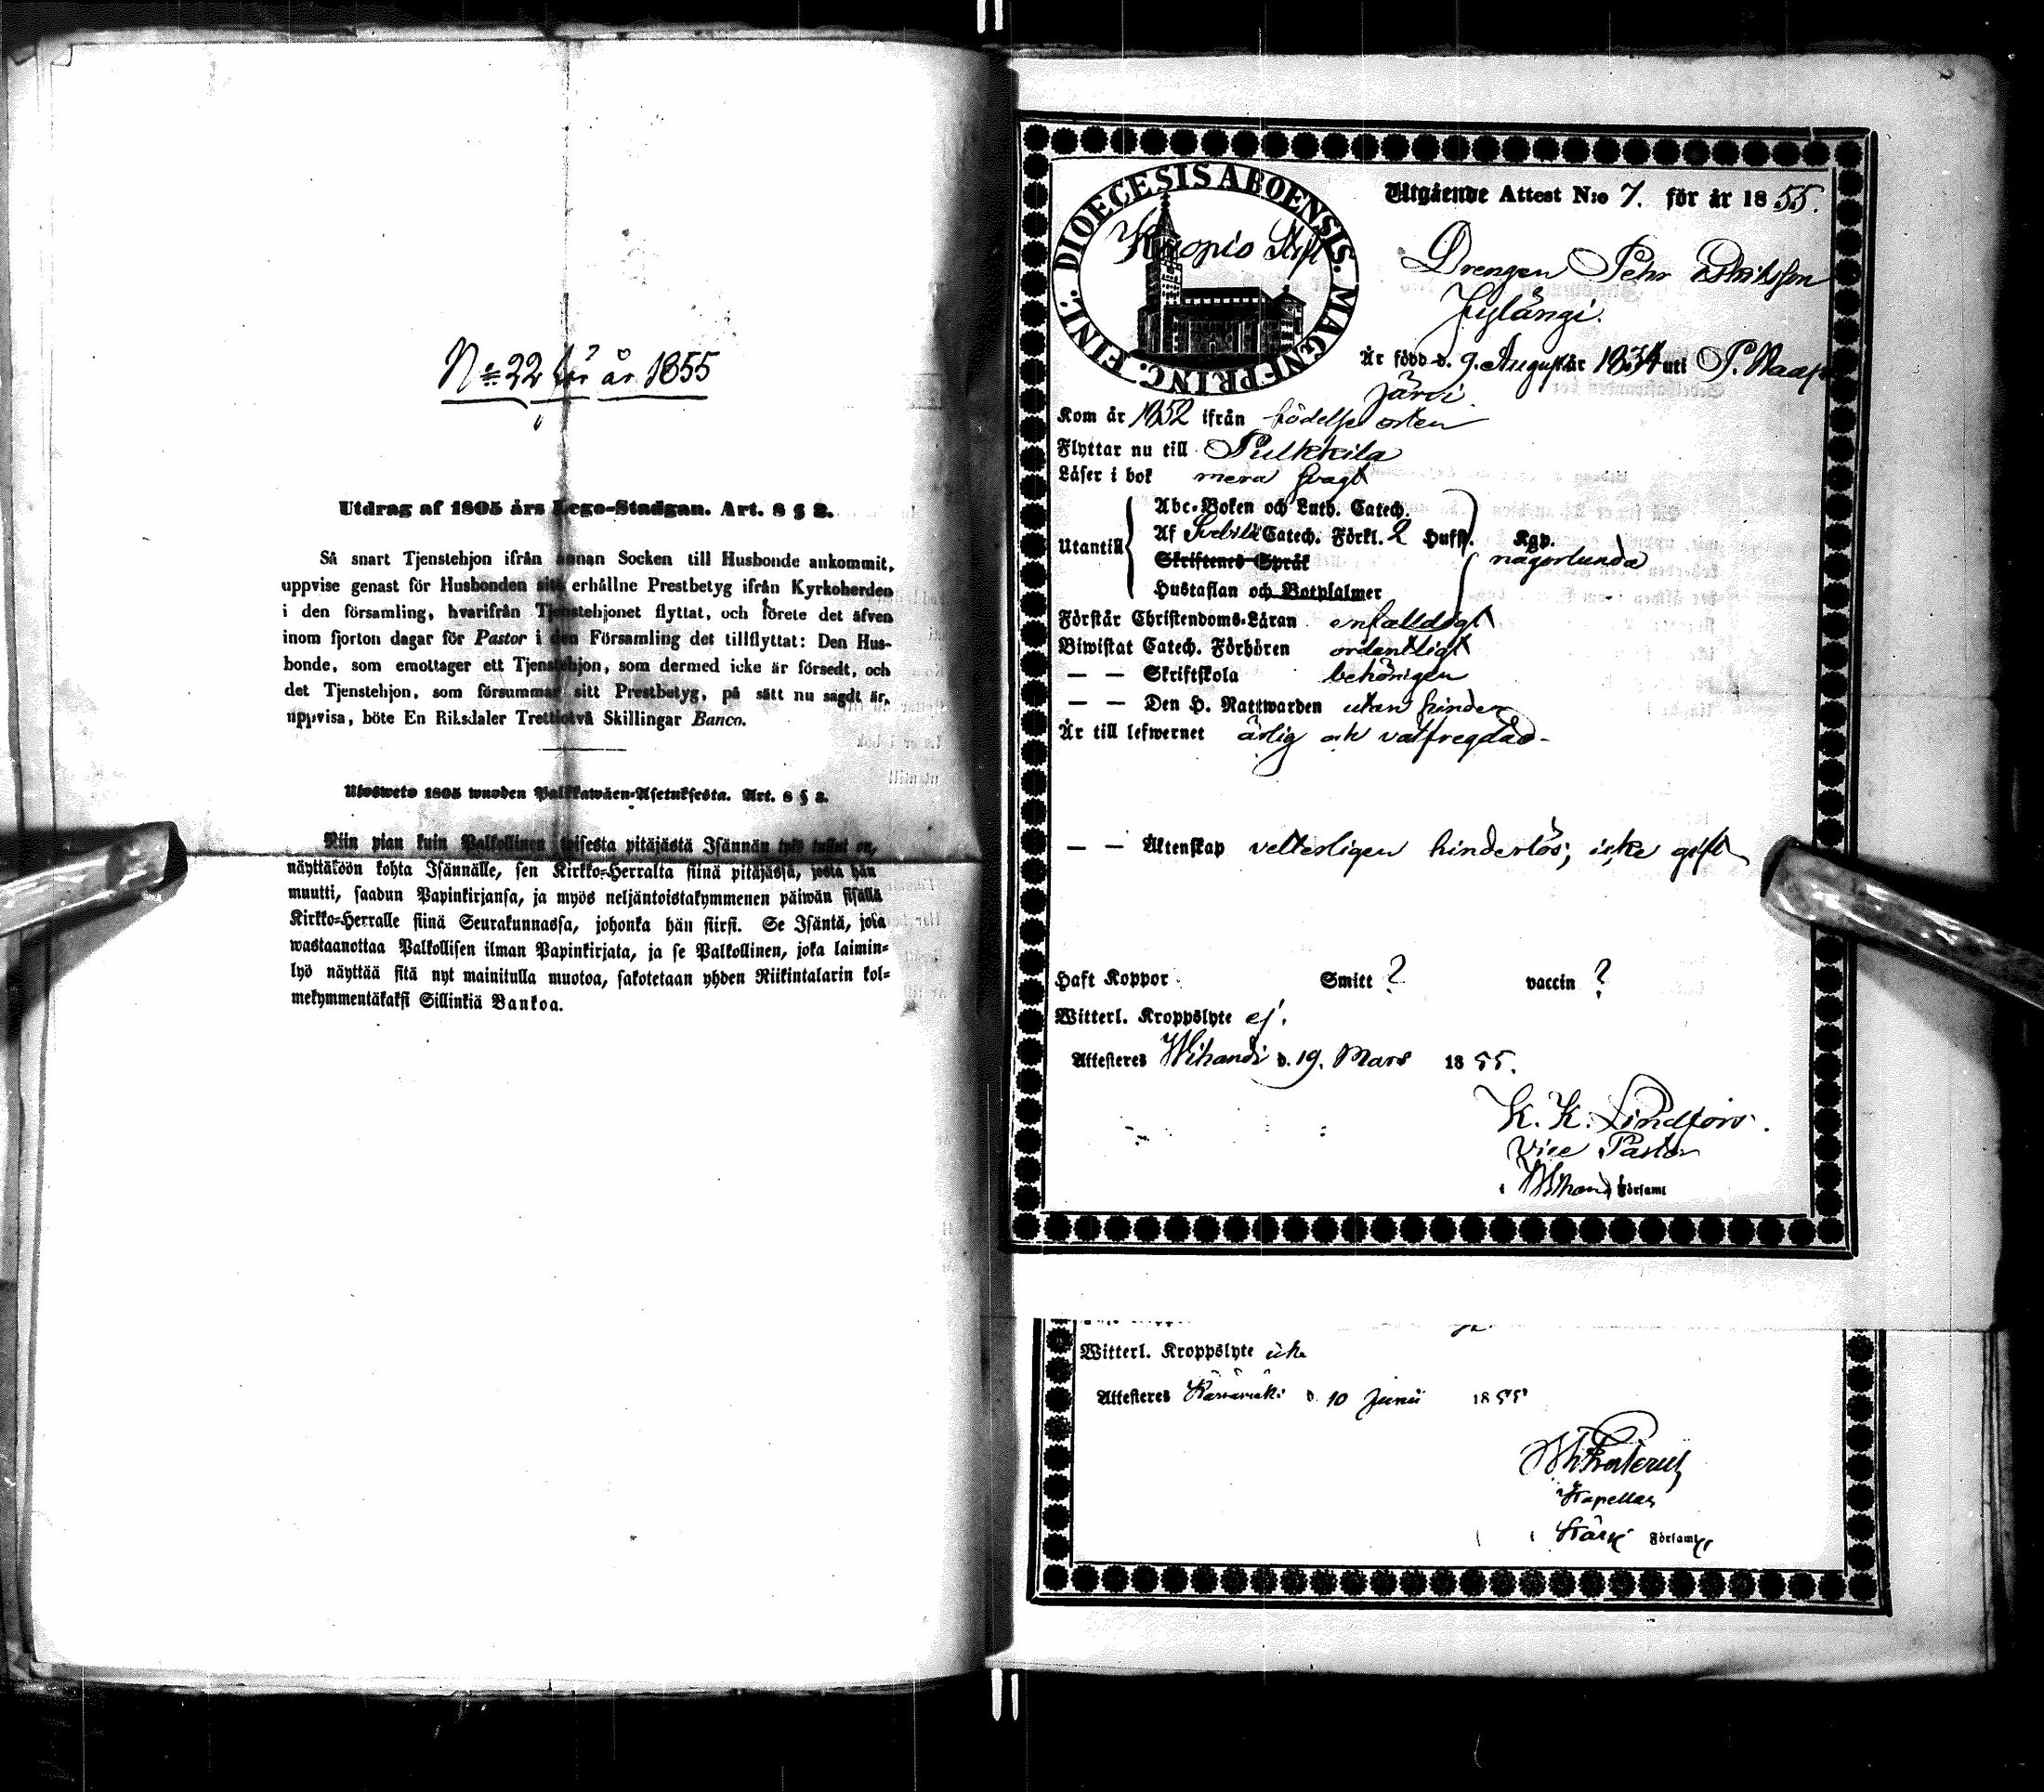 No 22 för år 1855
Utdrag af 1805 års Lego-Stadgan. Art. 8 § 2.
Så snart Tjenstehjon ifrån annan Socken till Husbonde ankommit,
uppvise genast för Husbonden sitt erhållne Prestbetyg ifrån Kyrkoherden
i den församling, hvarifrån Tjenstehjonet flyttat, och förete det äfven
inom fjorton dagar för Pastor i den Församling det tillflyttat: Den Hus-
bonde, som emottager ett Tjenstehjon, som dermed icke är försedt, och
det Tjenstehjon, som försummar sitt Prestbetyg, på sätt nu sagdt är,
uppvisa, böte En Riksdaler Trettiotvå Skillingar Banco.
Ulosweto 1805 wuoden Palkkawäen-Asetuksesta. Art. 8 § 2.
Niin pian kuin Palkollinen toisesta pitäjästä Isännän tykö tullut on,
näyttäköön kohta Isännälle, sen Kirkko-Herralta siinä pitäjässä, josta hän
muutti, saadun Papinkirjansa, ja myös neljäntoistakymmenen päiwän sisällä
Kirkko-Herralle siinä Seurakunnassa, johonka hän siirsi. Se Isäntä, joka
wastaanottaa Palkollisen ilman Papinkirjata, ja se Palkollinen, joka laimin-
lyö näyttää sitä nyt mainitulla muotoa, sakotetaan yhden Riikintalarin kol-
mekymmentäkaksi Sillinkiä Bankoa.
DIOECESIS ABOENSIS. MAGNI PRINC. FINL.
Kuopio Stift
Utgående Attest N:o 7. för år 1855.
Drengen Pehr
Jylängi.
Är född d. 9. August år 1834 uti P.
järvi.
Kom år 1852 ifrån födelse orten
Flyttar nu till Pulkkila
Läser i bok mera svagt
Utantill
Abc-Boken och Luth. Catech.
Af Svebilii Catech. Förkl. 2 Hufst. Kgp.
Skriftenes Språk någorlunda
Hustaflan och Botpsalmer
Förstår Christendoms-Läran enfalldigt
Biwistat Catech. Förhören ordentligt
— — Skriftskola behörigen
— — Den H. Nattwarden utan hinder
Är till lefwernet ärlig och välfregdad
— — Äktenskap vetterligen hinderlös; icke gift
Haft Koppor Smitt ? vaccin ?
Witterl. Kroppslyte ej.
Attesteres Wihandi d. 19. Mars 1855.
K. K. Lindfors.
Vice Pastor
i Wihandi Församl
Witterl. Kroppslyte icke
Attesteres Kärsämäki d. 10 Junii 1855
Kapellan
i Kärs. Församl